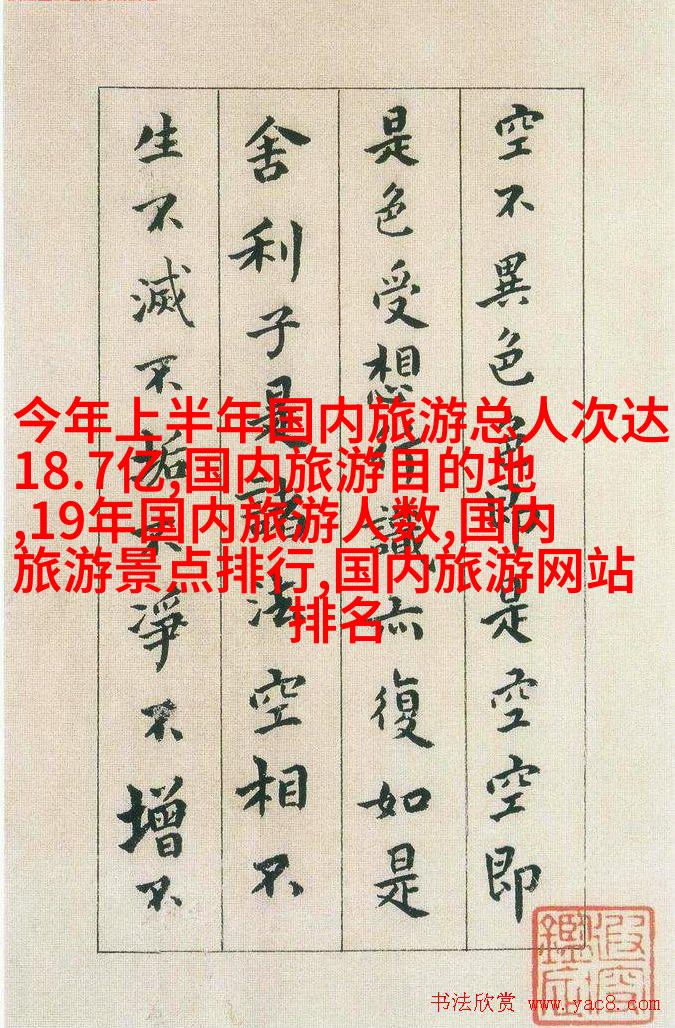 空不異色色即是空空即
是色受想行識亦復如是
舍利子是諸法空相不
生不滅不垢不淨不增不
今年上半年国内旅游总人次达
18.7亿,国内旅游目的地
,19年国内旅游人数,国内
旅游景点排行,国内旅游网站
排名
书法欣赏 www.yac8.com